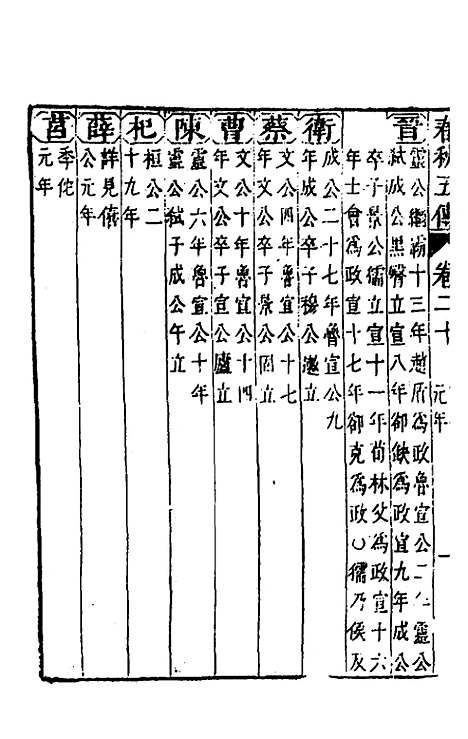 春秋五傳 卷二十 元年 一
晉
靈公夷皐十三年趙盾爲政魯宣公二年靈公
弑成公黑臀立宣八年卻缺爲政宣九年成公
卒子景公獳立宣十一年荀林父爲政宣十六
年士會爲政宣十七年卻克爲政○獳乃侯反
衛
成公二十七年魯宣公九
年成公卒子穆公遬立
蔡
文公四年魯宣公十七
年文公卒子景公固立
曹
文公十年魯宣公十四
年文公卒子宣公廬立
陳
靈公六年魯宣公十年
靈公弑子成公午立
杞
桓公二
十九年
薛
詳見僖
公元年
莒
季佗
元年